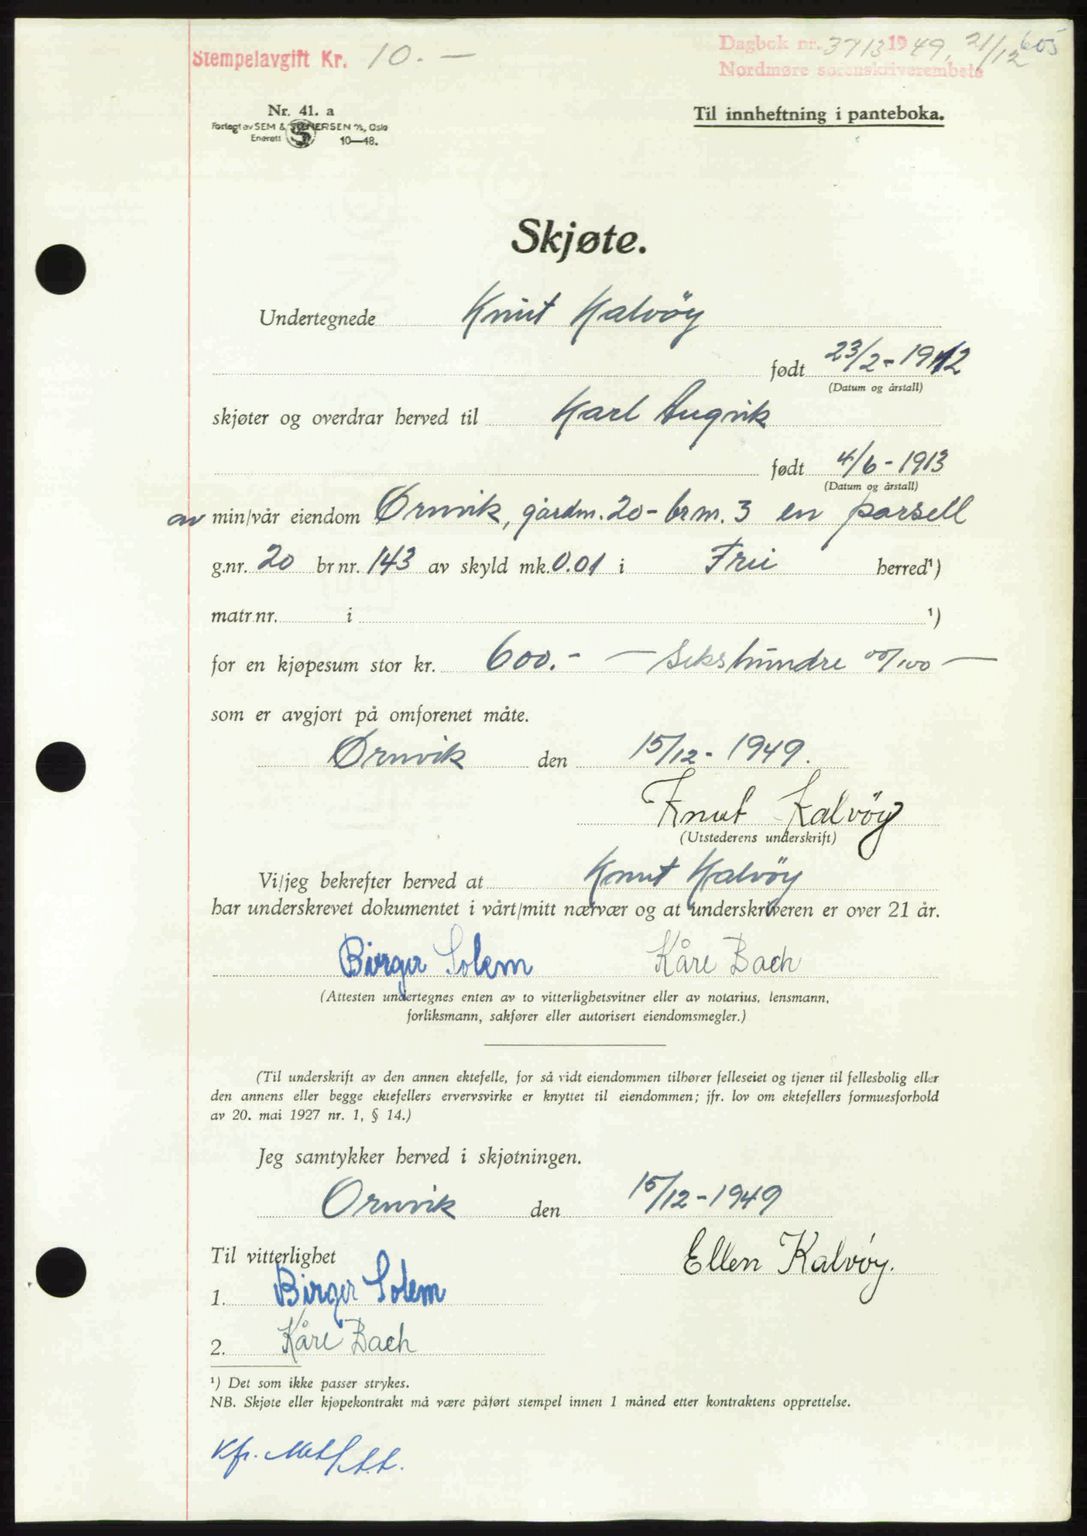 Stempelavgift Kr. 10.-
Dagbok nr. 3713 1949, 21/12 605
Nordmøre sorenskriverembete
Nr. 41. a
Forlagt av SEM & STENERSEN A/S, Oslo
Enerett 10—48.
Til innheftning i panteboka.
Skjøte.
Undertegnede Knut Kalvöy
født 23/2-1912
(Datum og årstall)
skjøter og overdrar herved til Karl Angvik
født 4/6-1913
(Datum og årstall)
av min/vår eiendom Ørnvik, gårdnr. 20 - brnr. 3 en parsell
g.nr. 20 br nr. 143 av skyld mk. 0.01 i Frei herred¹)
matr.nr. i ¹)
for en kjøpesum stor kr. 600.- — Sekshundre 00/100 —
som er avgjort på omforenet måte.
Ørnvik den 15/12-1949.
Knut Kalvöy
(Utstederens underskrift)
Vi/jeg bekrefter herved at Knut Kalvöy
har underskrevet dokumentet i vårt/mitt nærvær og at underskriveren er over 21 år.
Birger Solem Kåre Bach
(Attesten undertegnes enten av to vitterlighetsvitner eller av notarius, lensmann,
forliksmann, sakfører eller autorisert eiendomsmegler.)
(Til underskrift av den annen ektefelle, for så vidt eiendommen tilhører felleseiet og tjener til fellesbolig eller
den annens eller begge ektefellers ervervsvirke er knyttet til eiendommen; jfr. lov om ektefellers formuesforhold
av 20. mai 1927 nr. 1, § 14.)
Jeg samtykker herved i skjøtningen.
Ørnvik den 15/12-1949
Til vitterlighet Ellen Kalvöy.
1. Birger Solem
2. Kåre Bach
¹) Det som ikke passer strykes.
NB. Skjøte eller kjøpekontrakt må være påført stempel innen 1 måned etter kontraktens opprettelse.
Kfr.